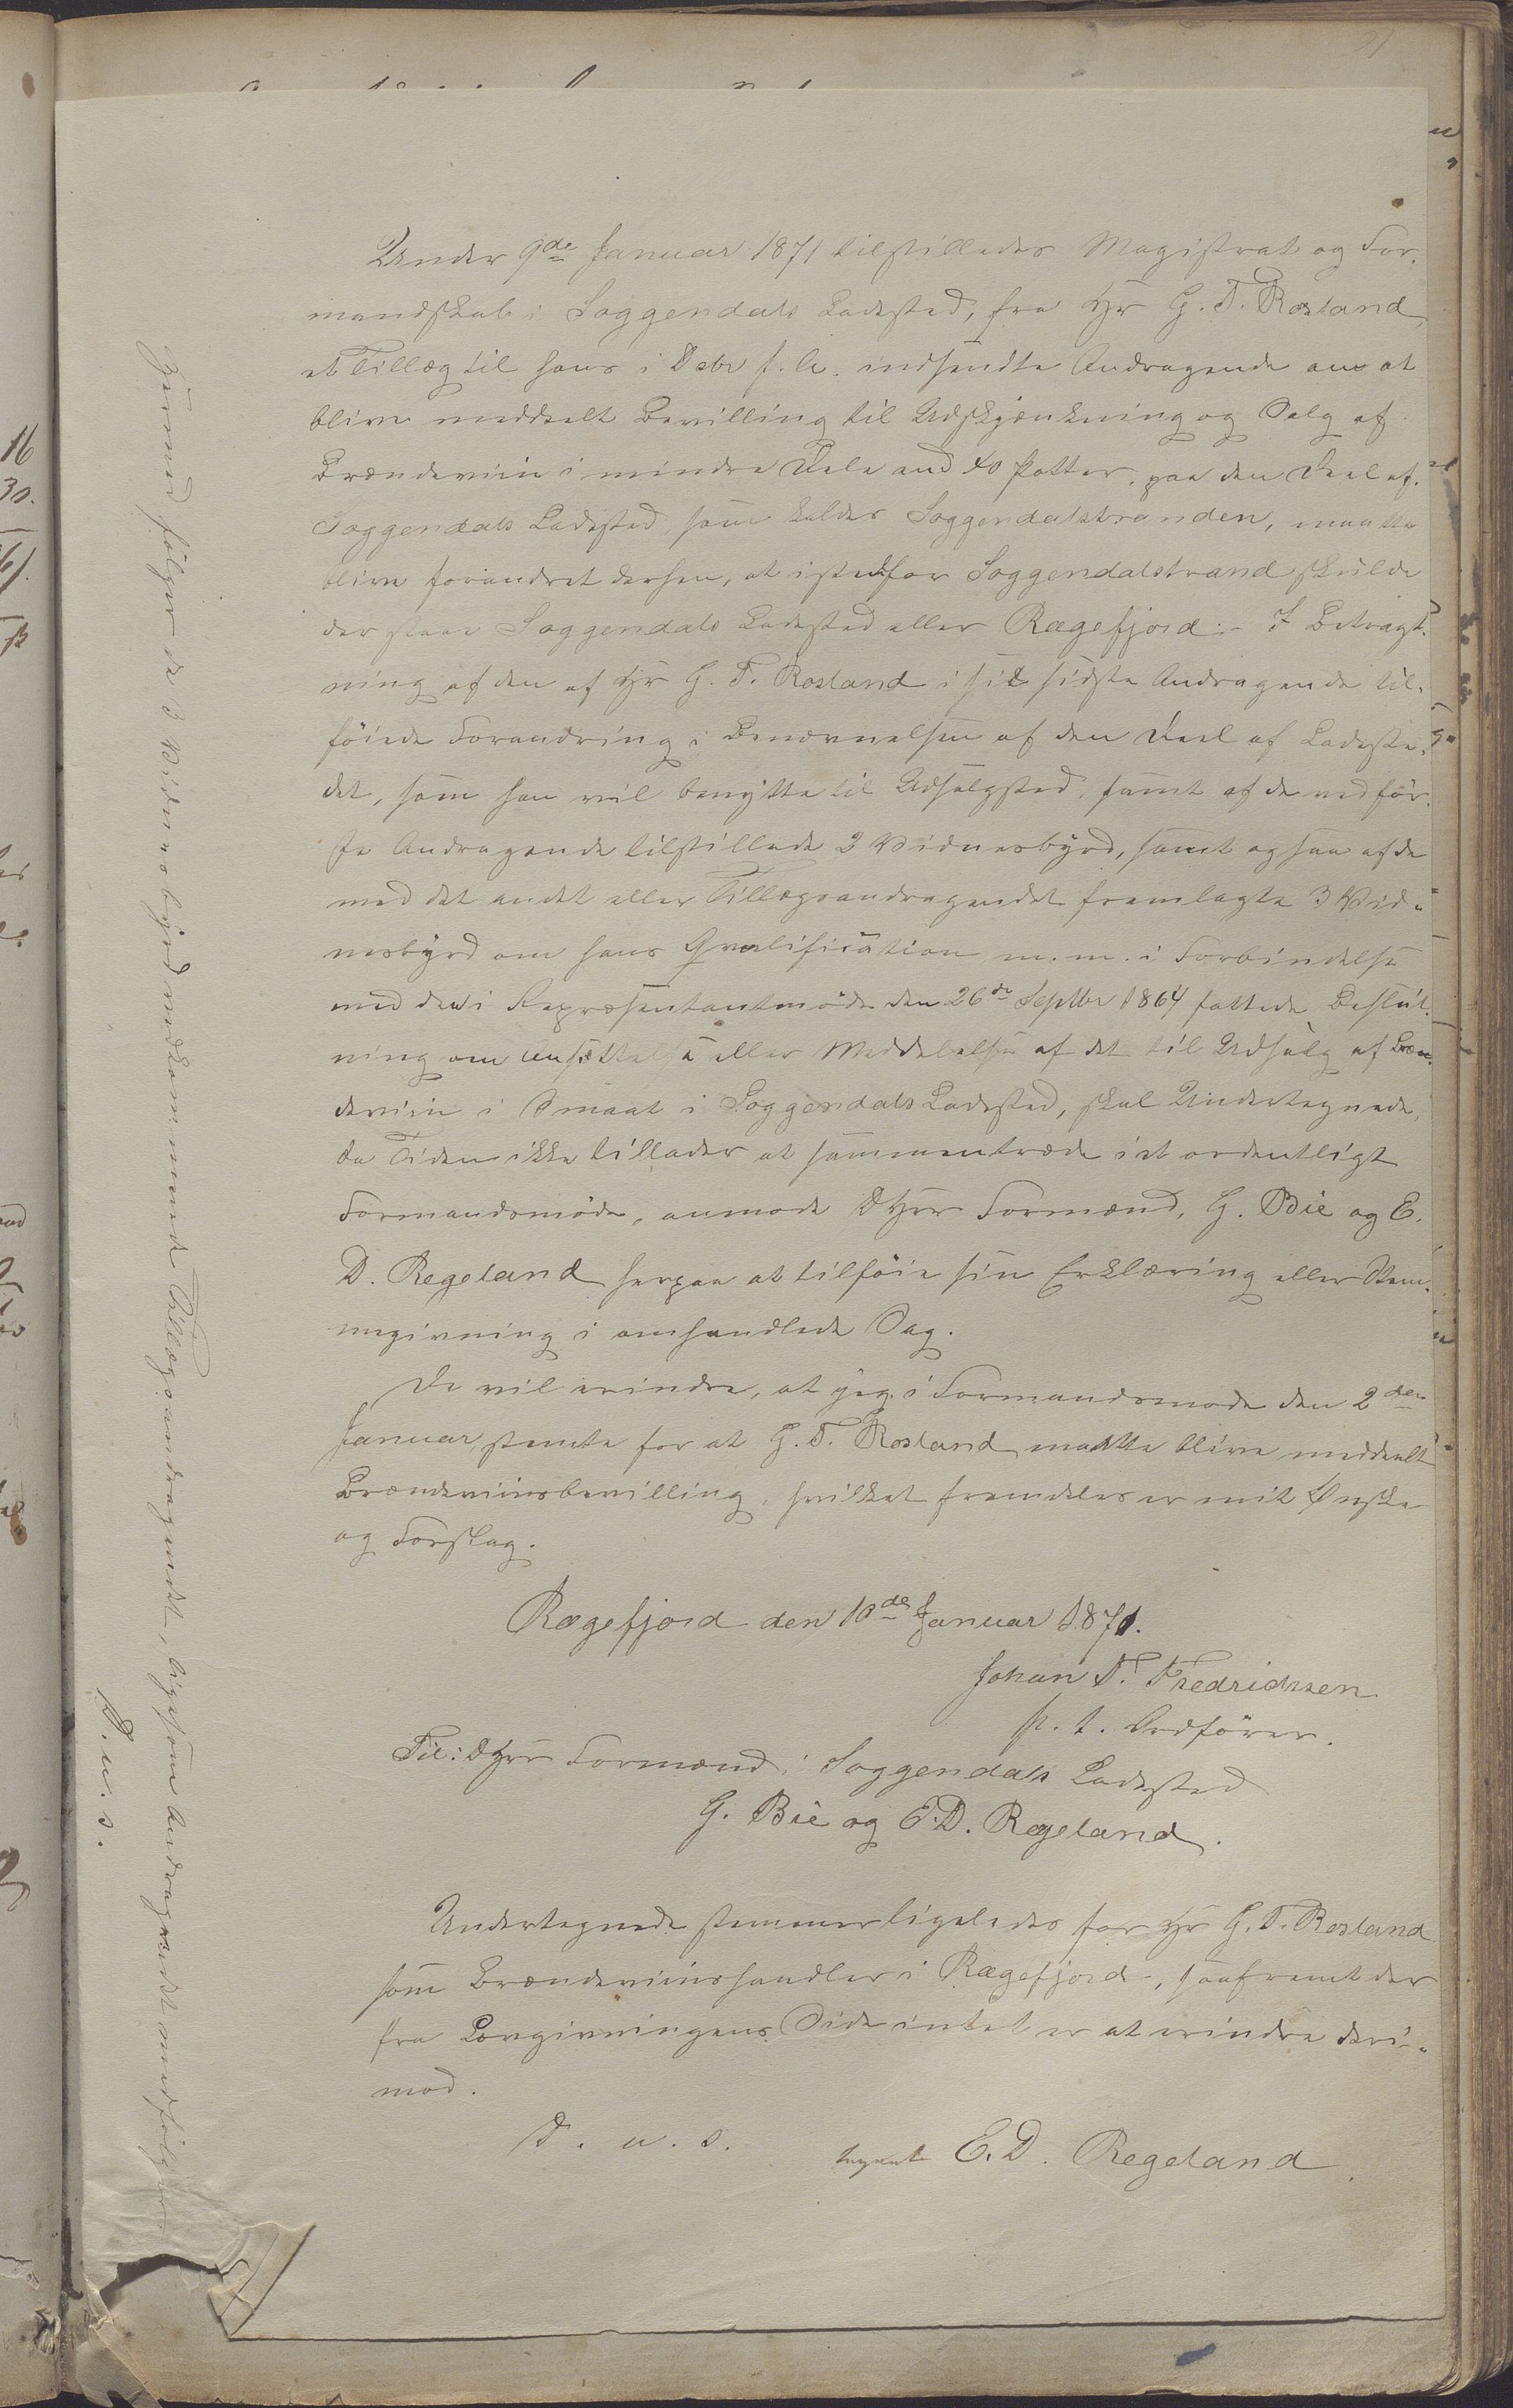 Under 9de Januar 1871 tilstilledes Magistrat og For-
mandskab i Soggendals Ladested, fra Hr G. T. Rosland
et Tillæg til hans i Debr f. A. indsendte Andragende om at
blive meddeelt Bevilling til Udskjænkning og Salg af
Brændeviin i mindre Dele end 40 Potter, paa den Deel af
Soggendals Ladested som kaldes Soggendalstranden, maatte
blive forandret derhen, at istedfor Soggendalstrand skulde
der staae Soggendals Ladested eller Rægefjord. - I Betragt-
ning af den af Hr G. T. Rosland i sit sidste Andragende til-
føiede Forandring i Benævnelsen af den Deel af Ladeste-
det, som han vil benytte til Udsalgssted, samt af de ved før-
ste Andragende tilstillede 2 Vidnesbyrd, samt ogsaa af de
med det andet eller Tillægsandragendet fremlagte 3 Vid-
nesbyrd om hans Qvalification m. m. i Forbindelse
med den i Repræsentantmøde den 26de Septbr 1864 fattede Beslut-
ning om Ansættelse eller Meddelelse af det til Udsalg af Bræn-
deviin i Smaat i Soggendals Ladested, skal Undertegnede,
da Tiden ikke tillader at sammentræde i et ordentligt
Formandsmøde, anmode DHrr Formænd, G. Bie og E.
D. Regeland herpaa at tilføie sin Erklæring eller Stem-
megivning i omhandlede Sag.
De vil erindre, at jeg i Formandsmøde den 2den
Januar stemte for at G. T. Rosland maatte blive meddeelt
Brændeviinsbevilling, hvilket fremdeles er mit Ønske
og Forslag.
Rægefjord den 10de Januar 1871.
Johan T. Fredrichsen
p. t. Ordfører.
Til: DHrr Formænd i Soggendals Ladested
G. Bie og E. D. Regeland.
Undertegnede stemmer ligeledes for Hr G. T. Rosland
som Brændeviinshandler i Rægefjord, saafremt der
fra Lovgivningens Side intet er at erindre deri-
mod.
D. u. s.
E. D. Regeland
Hermed følger de 3 Vidnesbyrd vedkommende Tillægsandragendet, ligesom Andragendet medfølger.
D. u. s.